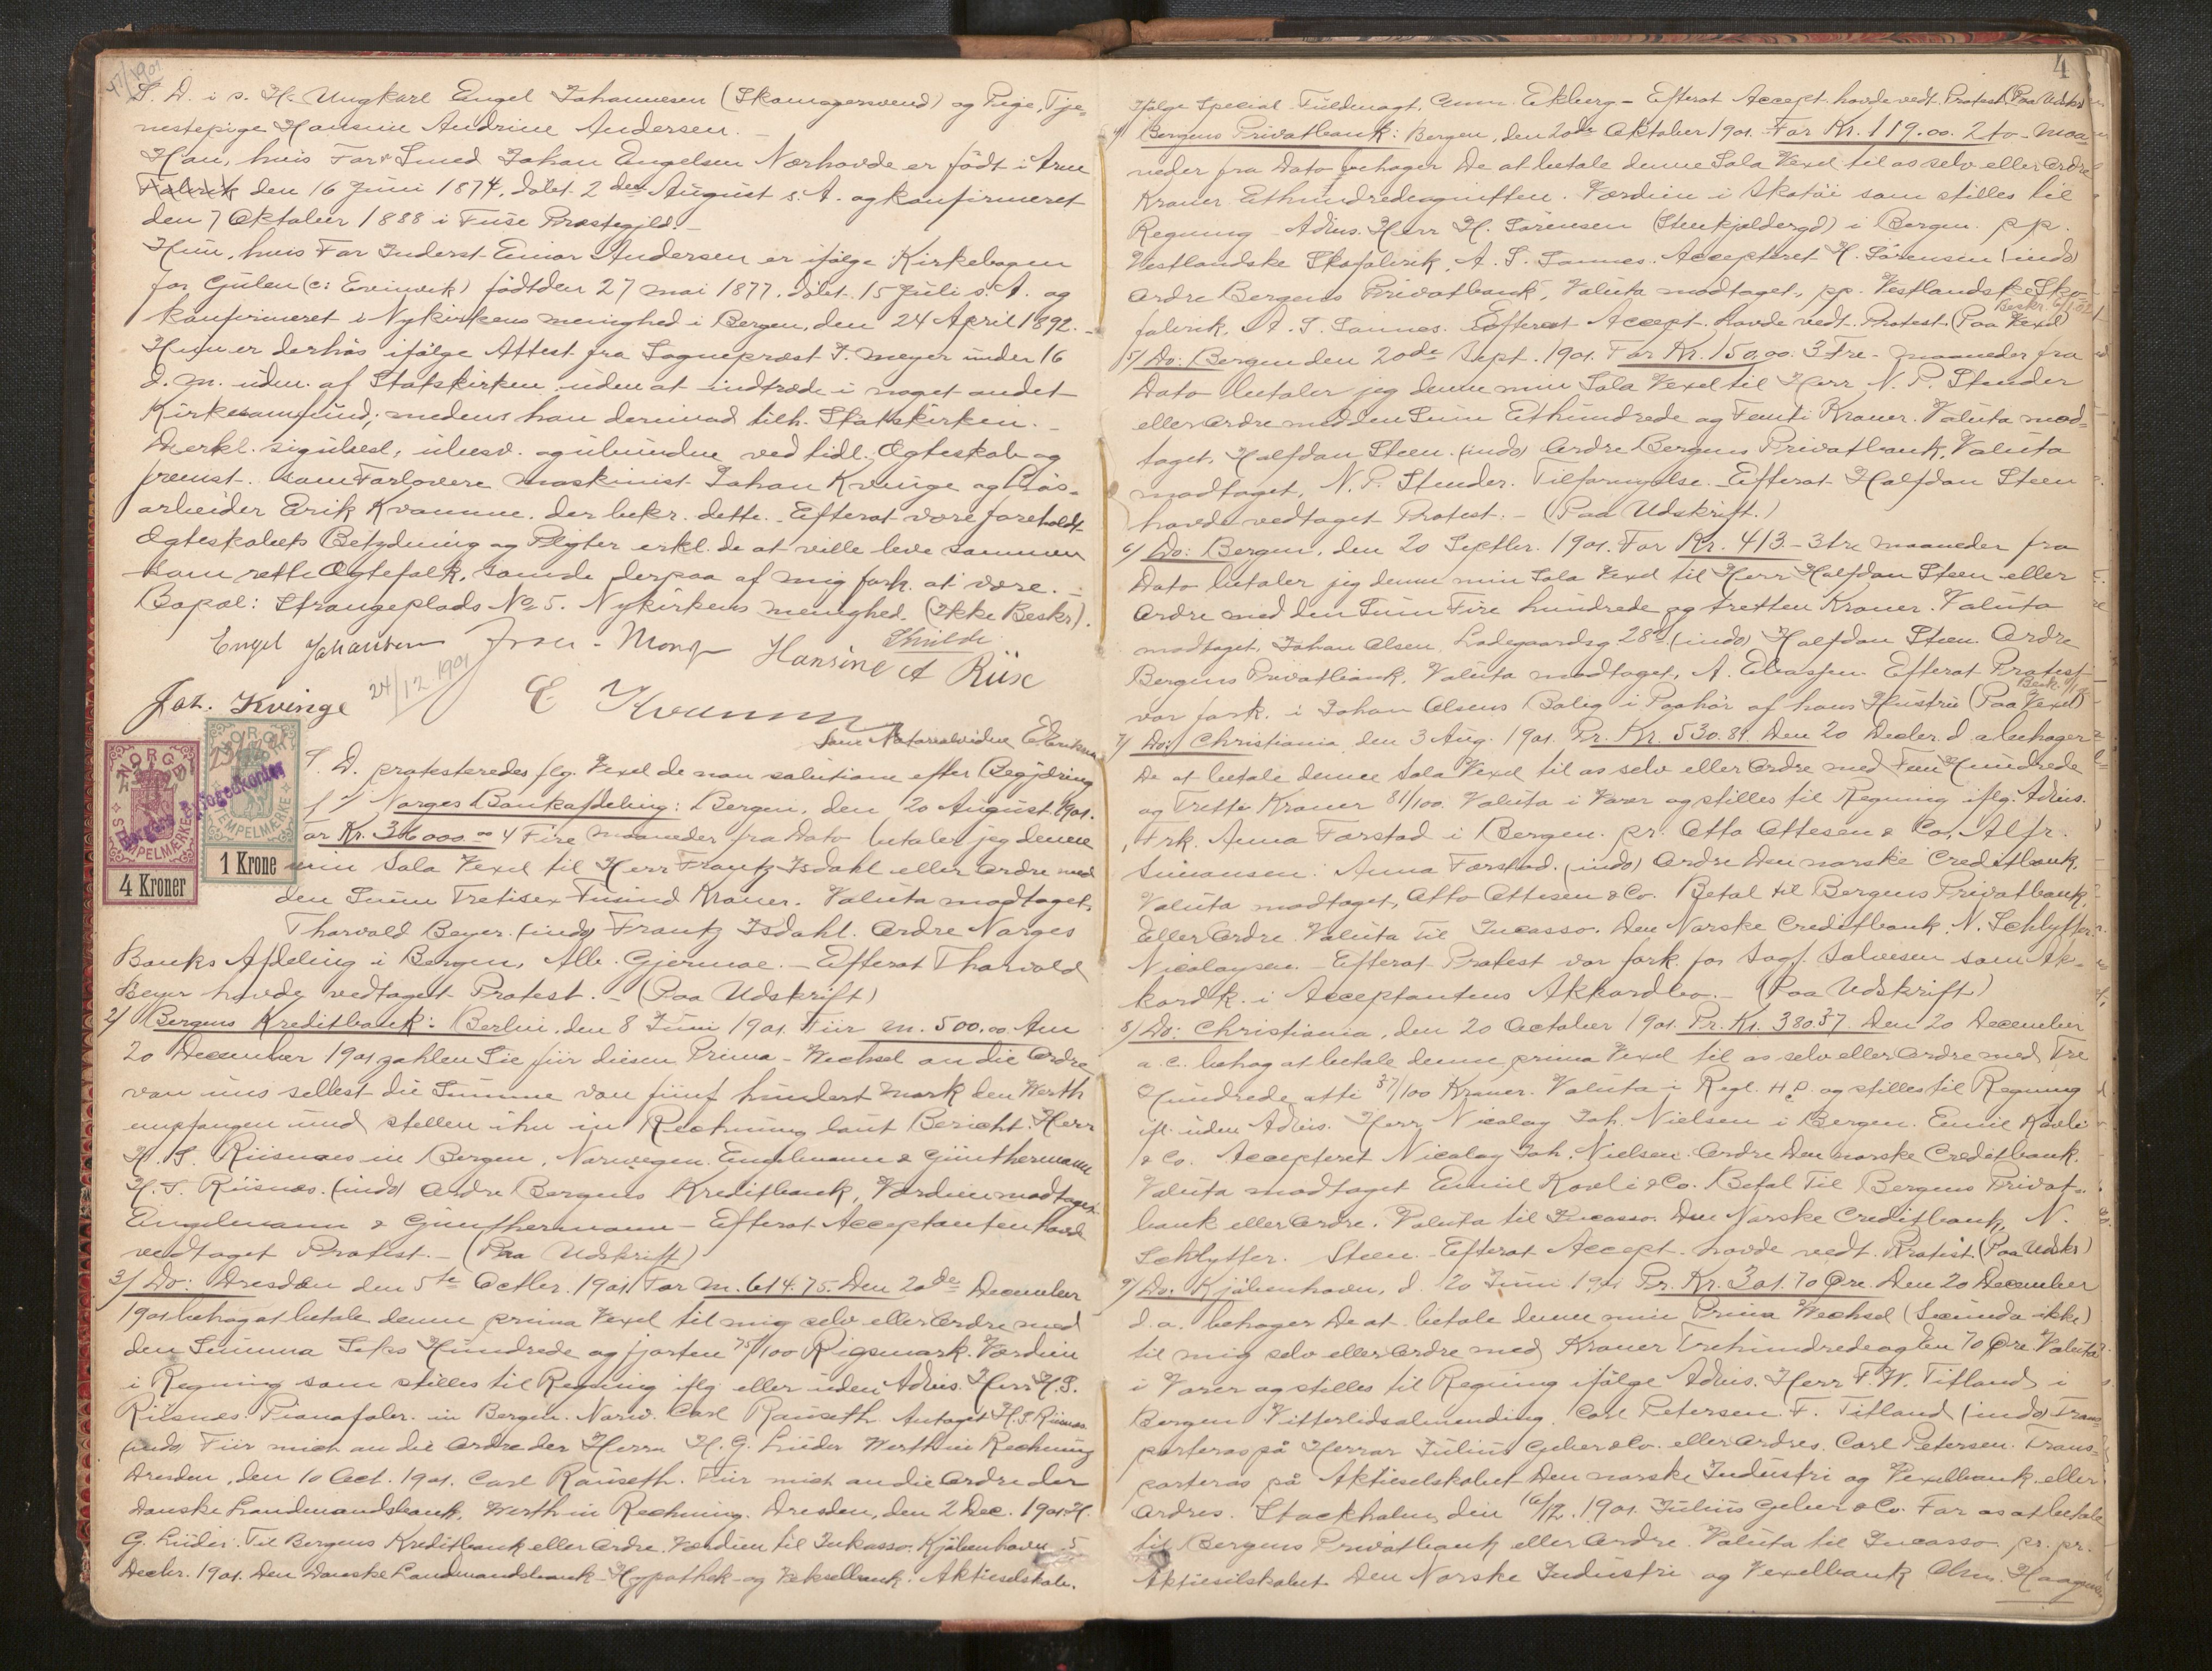 47/1901
S. D. i s. H. Ungkarl Engel Johannesen (Skomagersvend) og Pige, Tje-
nestepige Hansine Andrine Andersen. -
Han, hvis Far Smed Johan Engelsen Nærhovde er født i Arne
Fabrik den 16 Juni 1874, døbt 2den August s. A. og konfirmeret
den 7 Oktober 1888 i Fuse Præstegjeld. -
Hun, hvis Far Inderst Einar Andersen er ifølge Kirkebogen
for Gulen (c: Evinvik) født den 27 mai 1877, døbt 15 Juli s. A. og
konfirmeret i Nykirkens menighed i Bergen, den 24 April 1892. -
Hun er derhos ifølge Attest fra Sognepræst J. Meyer under 16
d. m. udm. af Statskirken uden at indtræde i noget andet
Kirkesamfund; medens han derimod tilh. Statskirken. -
De erkl. sig ubesl., ubesv. og ubundne ved tidl. Ægteskab og
fremst. som Forlovere Maskinist Johan Kvinge og Løs-
arbeider Erik Kvamme, der bekr. dette. - Efterat være foreholdt
Ægteskabets Betydning og Pligter erkl. de at ville leve sammen
som rette Ægtefolk, som de derpaa af mig fork. at være. -
Bopæl: Strangeplads No 5. Nykirkens menighed. (Ikke Beskr).
Engel Johansen
Hansine A Riise
Joh. Kvinge 24/12 1901
E Kvamm
som Notarialvidne
NORGE
STEMPELMÆRKE
4 Kroner
NORGE
STEMPELMÆRKE
1 Krone
S. D. protesteredes flg. Vexel de non solutione efter Begjæring
1/ Norges Bankafdeling: Bergen, den 20 August 1901.
For Kr. 36000.00 4 Fire maaneder fra Dato betaler jeg denne
min Sola Vexel til Herr Frantz Isdahl eller Ordre med
den Sum Tretisex Tusind Kroner. Valuta modtaget,
Thorvald Beyer. (indo) Frantz Isdahl. Ordre Norges
Banks Afdeling i Bergen. Alb. Gjermoe. - Efterat Thorvald
Beyer havde vedtaget Protest. - (Paa Udskrift)
2/ Bergens Kreditbank: Berlin, den 8 Juni 1901. Für M. 500.00 Am
20 December 1901 zahlen Sie für diesen Prima-Wechsel an die Ordre
von uns selbst die Summe von fünf hundert Mark den Werth
empfangen und stellen ihn in Rechnung laut Bericht. Herr
H. S. Riisnæs in Bergen, Norwegen. Engelmann & Günthermann
H. S. Riisnæs. (indo) Ordre Bergens Kreditbank, Værdien modtaget.
Engelmann & Günthermann - Efterat Acceptanten havde
vedtaget Protest. - (Paa Udskrift)
3/ Do: Dresden den 5te Octbr. 1901. For M. 614.75. Den 20de December
1901 behag at betale denne prima Vexel til mig selv eller Ordre med
den Summa Seks Hundrede og fjorten 75/100 Rigsmark. Værdien
i Regning som stilles til Regning iflg eller uden Advis. Herr H. S.
Riisnæs Pianofabr. in Bergen. Norw. Carl Rauseth. Antaget H. S. Riisnæs
(indo) Für mich an die Ordre der Herrn H. G. Lüder Werth in Rechnung
Dresden, den 10 Oct. 1901. Carl Rauseth. Für mich an die Ordre der
Danske Landmandsbank, Werth in Rechnung. Dresden, den 2 Dec. 1901. H.
G. Lüder. Til Bergens Kreditbank eller Ordre. Værdien til Inkasso. Kjøbenhavn 5
Decbr. 1901. Den Danske Landmandsbank-Hypothek- og Vekselbank. Aktieselskab.
4
Ifølge Special Fuldmagt, Ekberg - Efterat Accept. havde vedt. Protest. (Paa Udskr)
4/ Bergens Privatbank: Bergen, den 20de Oktober 1901. For Kr. 119.00. 2 to maa-
neder fra Dato behager De at betale denne Sola Vexel til os selv eller Ordre
Kroner Ethundredeognitten. Værdien i Skotøi som stilles til
Regning Advis. Herr H. Sørensen (Stenkjeldergd) i Bergen. pp.
Vestlandske Skofabrik, A. S. Sannes. Accepteret H. Sørensen (indo)
Ordre Bergens Privatbank, Valuta modtaget, pp. Vestlandske Sko-
fabrik, A. S. Sannes. Efterat Accept. havde vedt. Protest. (Paa Vexel)
5/ Do: Bergen den 20de Sept. 1901. For Kr. 150,00. 3 Tre - maaneder fra
Dato betaler jeg denne min Sola Vexel til Herr N. P. Stender
eller Ordre med den Sum Ethundrede og Femti Kroner. Valuta mod-
taget, Halfdan Steen. (indo) Ordre Bergens Privatbank, Valuta
modtaget, N. P. Stender. Tilfornyelse. - Efterat Halfdan Steen
havde vedtaget Protest. - (Paa Udskrift.)
6/ Do: Bergen, den 20 Septbr. 1901. For Kr. 413 - 3 tre maaneder fra
Dato betaler jeg denne min Sola Vexel til Herr Halfdan Steen eller
Ordre med den Sum Fire hundrede og tretten Kroner. Valuta
modtaget, Johan Olsen, Ladegaardsg. 28 (indo) Halfdan Steen. Ordre
Bergens Privatbank, Valuta modtaget, A. Eliassen. Efterat Protest
var fork. i Johan Olsens Bolig i Paahør af hans Hustru (Paa Vexel)
7/ Do: Christiania, den 3 Aug. 1901. Pr. Kr. 530.81. Den 20 Decbr. d. a. behager
De at betale denne Sola Vexel til os selv eller Ordre med Fem Hundrede
og Tretti Kroner 81/100. Valuta i Varer og stilles til Regning iflg. Advis.
Frk. Anna Farstad i Bergen. pr. Otto Ottesen & Co, Alfr.
Simonsen. Anna Farstad. (indo) Ordre Den norske Creditbank,
Valuta modtaget, Otto Ottesen & Co. Betal til Bergens Privatbank,
Eller Ordre. Valuta til Incasso. Den Norske Creditbank. N. Schlytter.
Nicolaysen. - Efterat Protest var fork. for Sagf. Salvesen som Ak-
kordk. i Acceptantens Akkordbo. - (Paa Udskrift)
8/ Do: Christiania, den 20 October 1901. Pr. Kr. 380.37. Den 20 December
a. c. behag at betale denne prima Vexel til os selv eller Ordre med Tre
Hundrede otti 37/100 Kroner. Valuta i Regl. og stilles til Regning
ifl. uden Advis. Herr Nicolay Joh. Nielsen i Bergen. Emil Kavli
& Co. Accepteret Nicolay Joh. Nielsen. Ordre Den norske Creditbank.
Valuta modtaget Emil Kavli & Co. Betal til Bergens Privat-
bank eller Ordre. Valuta til Incasso. Den Norske Creditbank, N.
Schlytter. Steen. - Efterat Accept. havde vedt. Protest. (Paa Udskr)
9/ Do. Kjøbenhavn, d. 20 Juni 1901. Pr. Kr. 301.70 Øre. Den 20 December
d. a. behager De at betale denne min Prima Wechsel (Secunda ikke)
til mig selv eller Ordre med Kroner Trehundredeogen 70 Øre. Valuta
i Varer og stilles til Regning ifølge Advis. Herr F. W. Titland i
Bergen Vitterlidsalmending. Carl Petersen. F. Titland (indo) Trans-
porteras på Herrar Julius Geber & Co. eller Ordres. Carl Petersen. Trans-
porteras på Aktieselskabet Den norske Industri og Vexelbank eller
Ordres. Stockholm den 16/12. 1901. Julius Geber & Co. For os at betale
til Bergens Privatbank eller Ordre. Valuta til Incasso pr. pr.
Aktieselskabet Den Norske Industri og Vexelbank